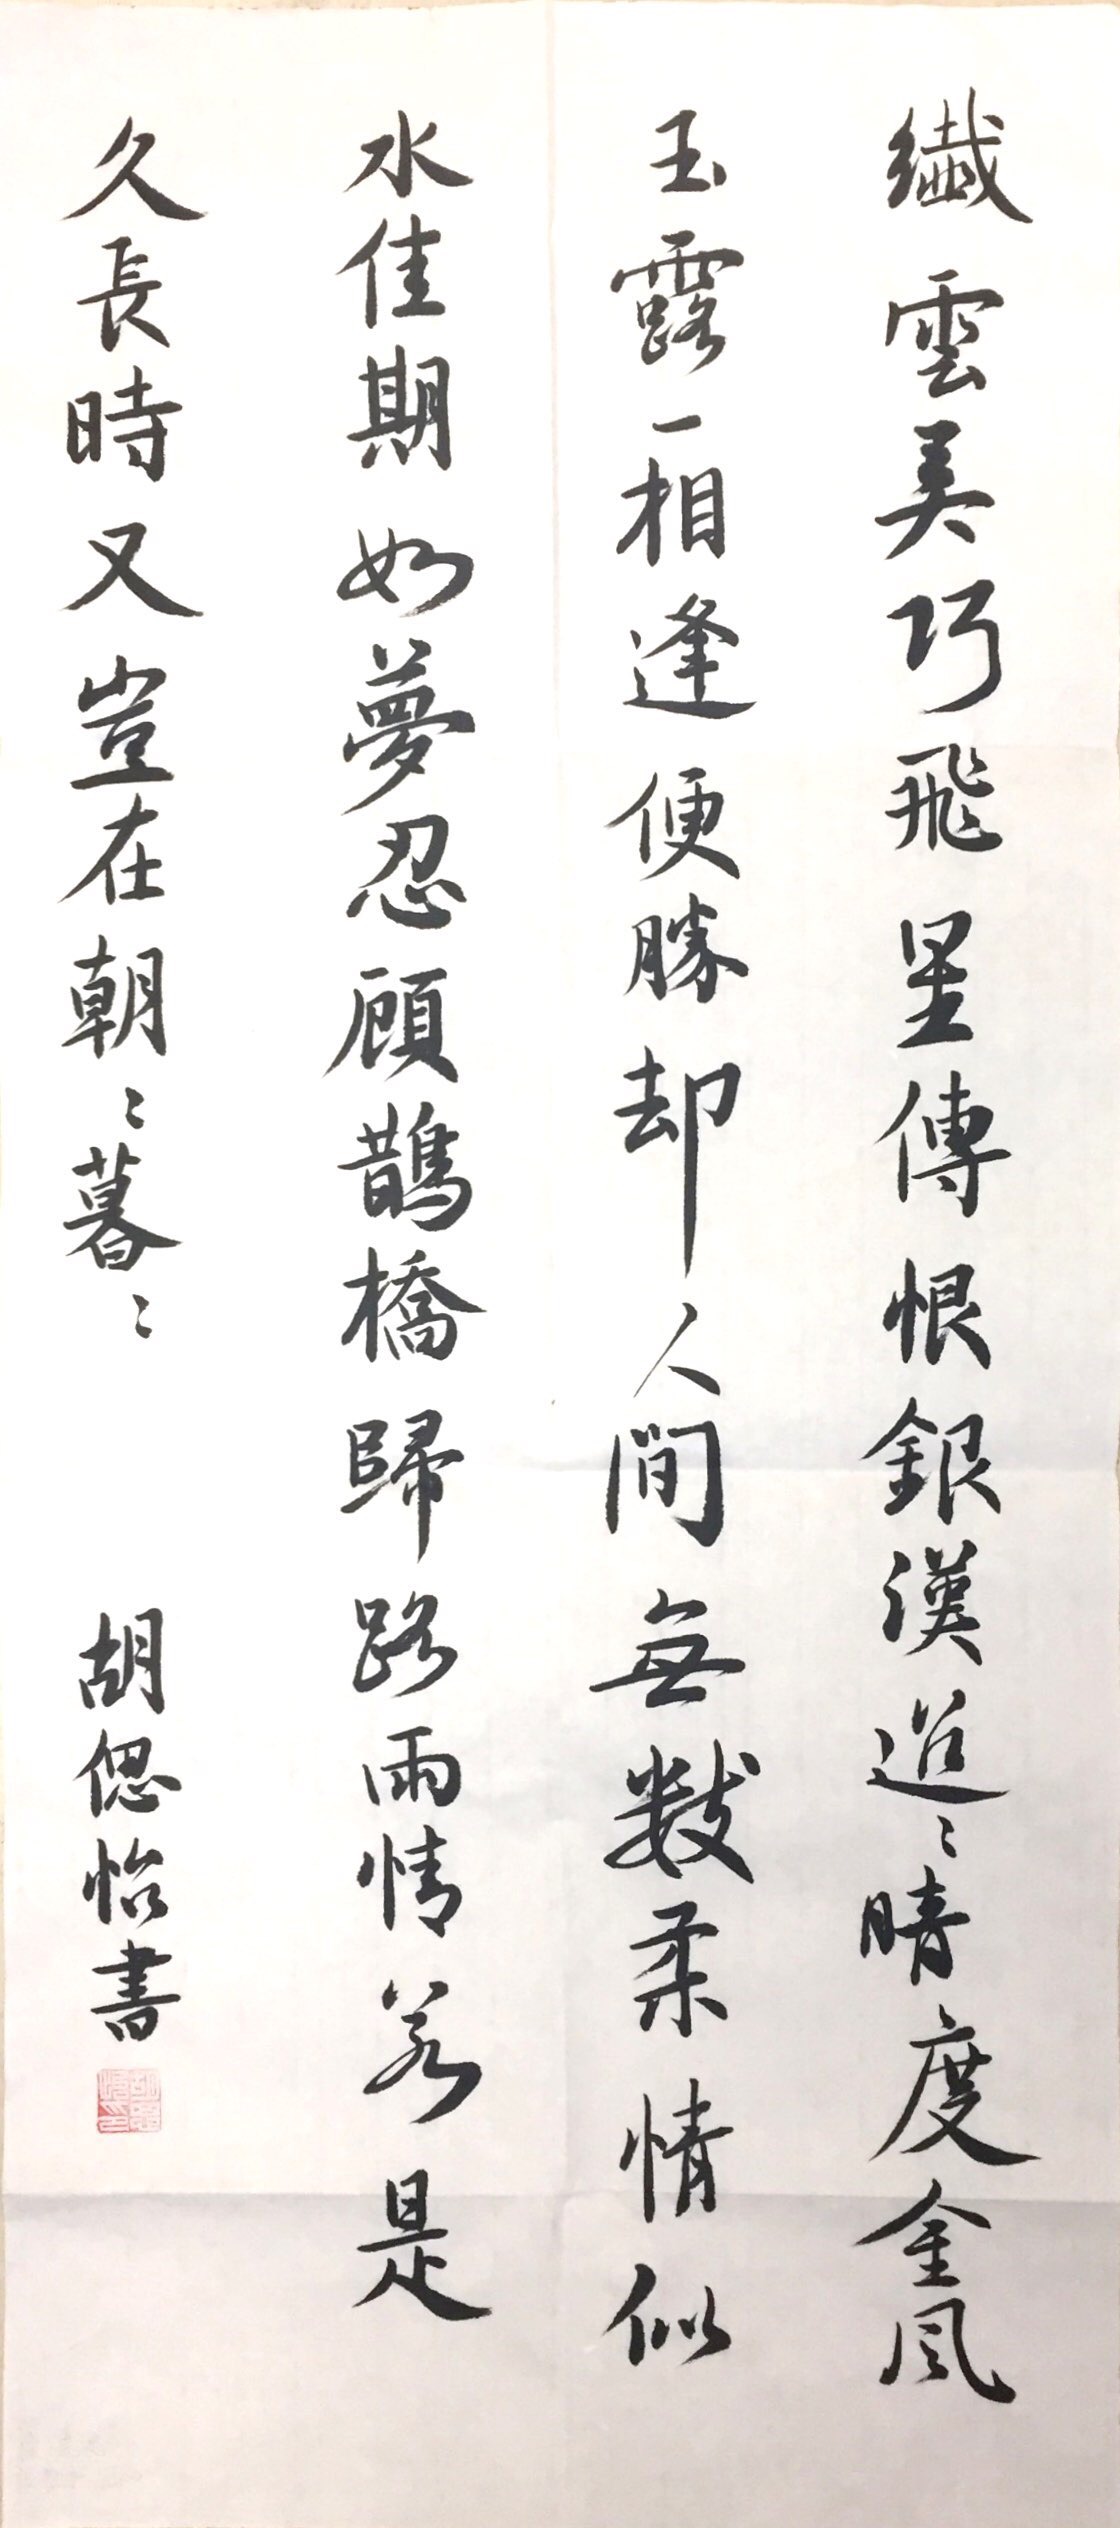 纖雲弄巧飛星傳恨銀漢迢〻暗度金風
玉露一相逢便勝却人間無數柔情似
水佳期如夢忍顧鵲橋歸路兩情若是
久長時又豈在朝〻暮〻 胡偲怡書